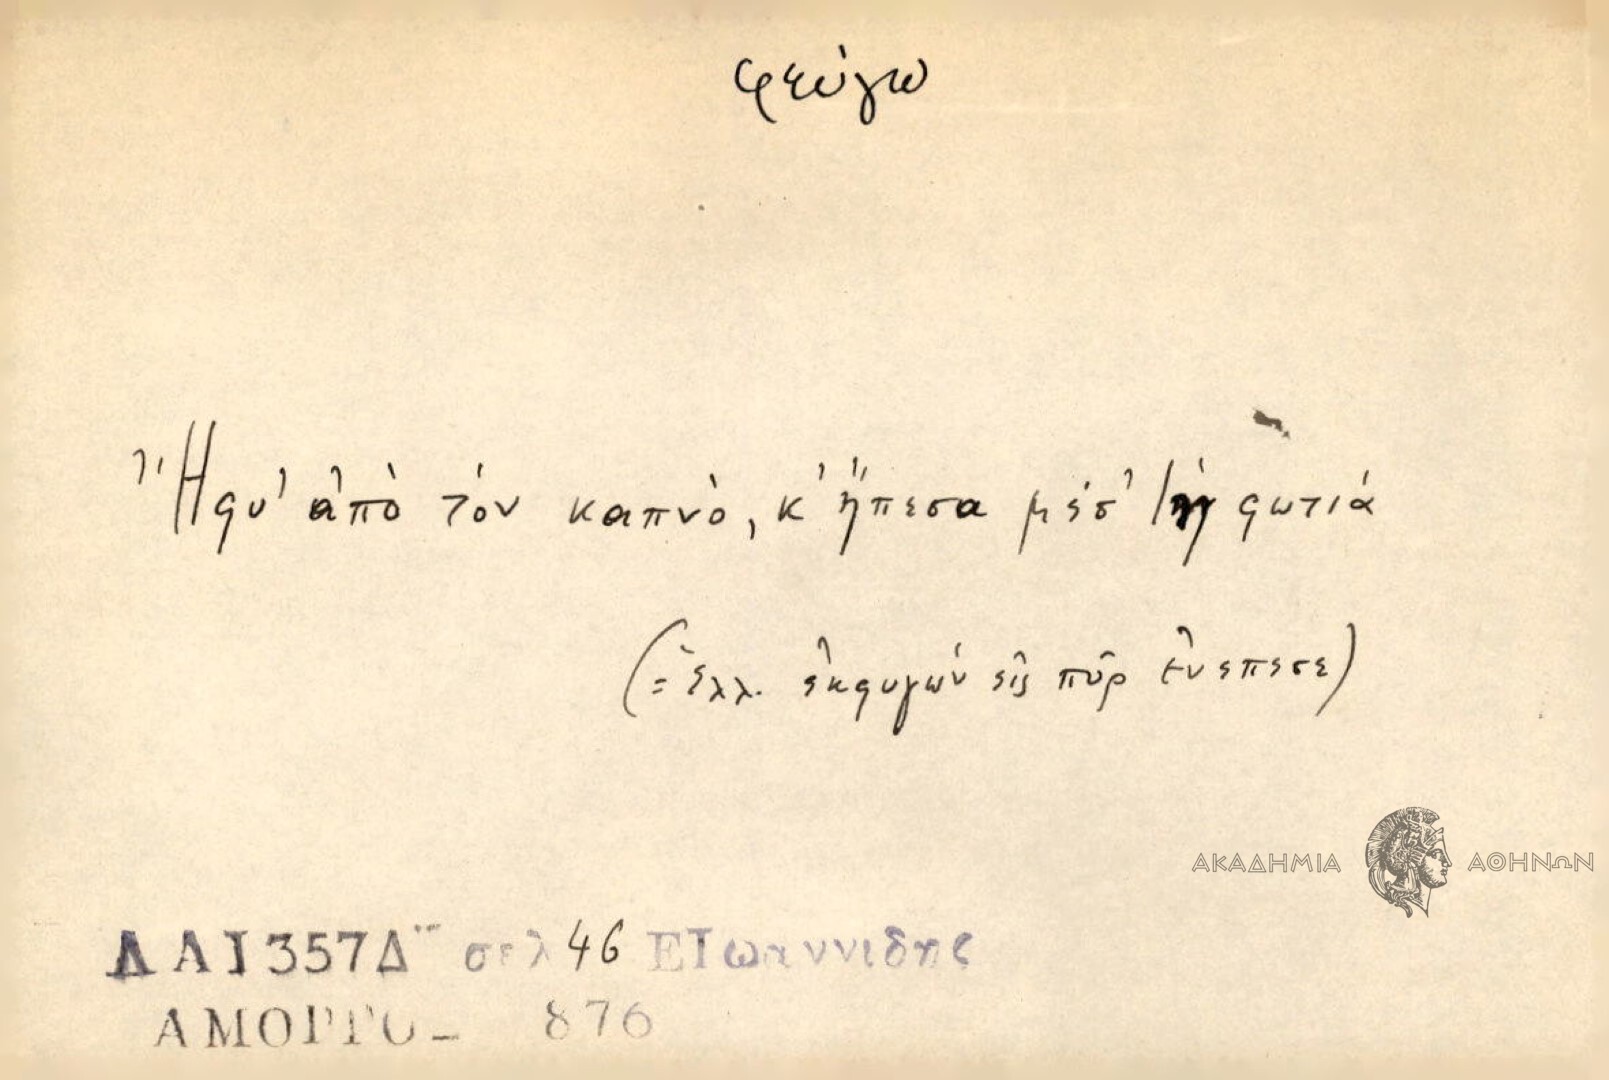 φεύγω
Ἤφυ' ἀπὸ τὸν καπνὸ, κ' ἤπεσα μέσ' 'ς τὴ φωτιά
(= Ἑλλ. ἐκφυγὼν εἰς πῦρ ἐνέπεσε)
ΑΚΑΔΗΜΙΑ ΑΘΗΝΩΝ
ΔΑΙ357Δ σελ 46 ΕΙωαννιδης
ΑΜΟΡΓΟ_ 876